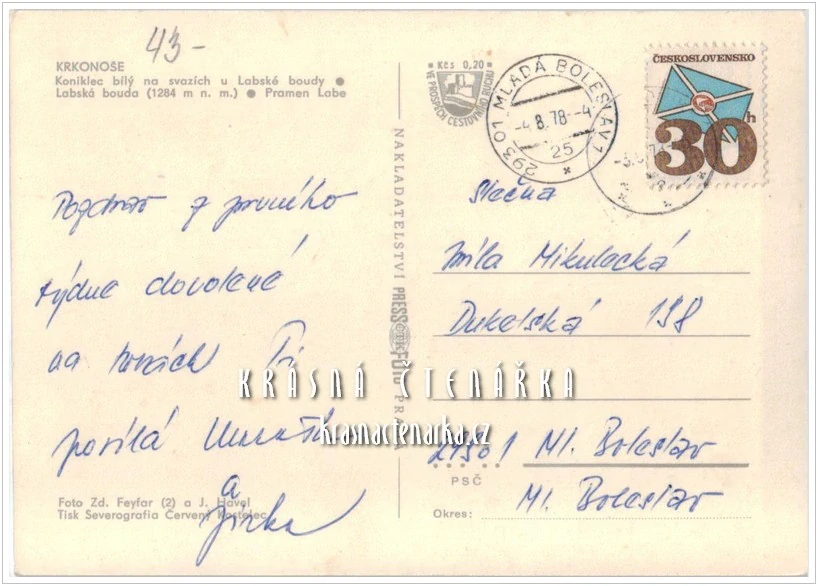 43-
KRKONOŠE
Koniklec bílý na svazích u Labské boudy ●
Labská bouda (1284 m n. m.) ● Pramen Labe
Pozdrav z prvního
týdne dovolené
na horách Ti
posílá
a
Jirka
Foto Zd. Feyfar (2) a J. Havel
Tisk Severografia Červený Kostelec
NAKLADATELSTVÍ PRESSFOTO PRAHA
ČTK
Kčs 0,20
VE PROSPĚCH CESTOVNÍHO RUCHU
293 01 MLADÁ BOLESLAV 1
-4.8.78-4
25
ČESKOSLOVENSKO
30h
Slečna
Míla Mikulecká
Dukelská 198
29301 Ml. Boleslav
PSČ
Ml. Boleslav
Okres:
KRÁSNÁ ČTENÁŘKA
krasnactenarka.cz